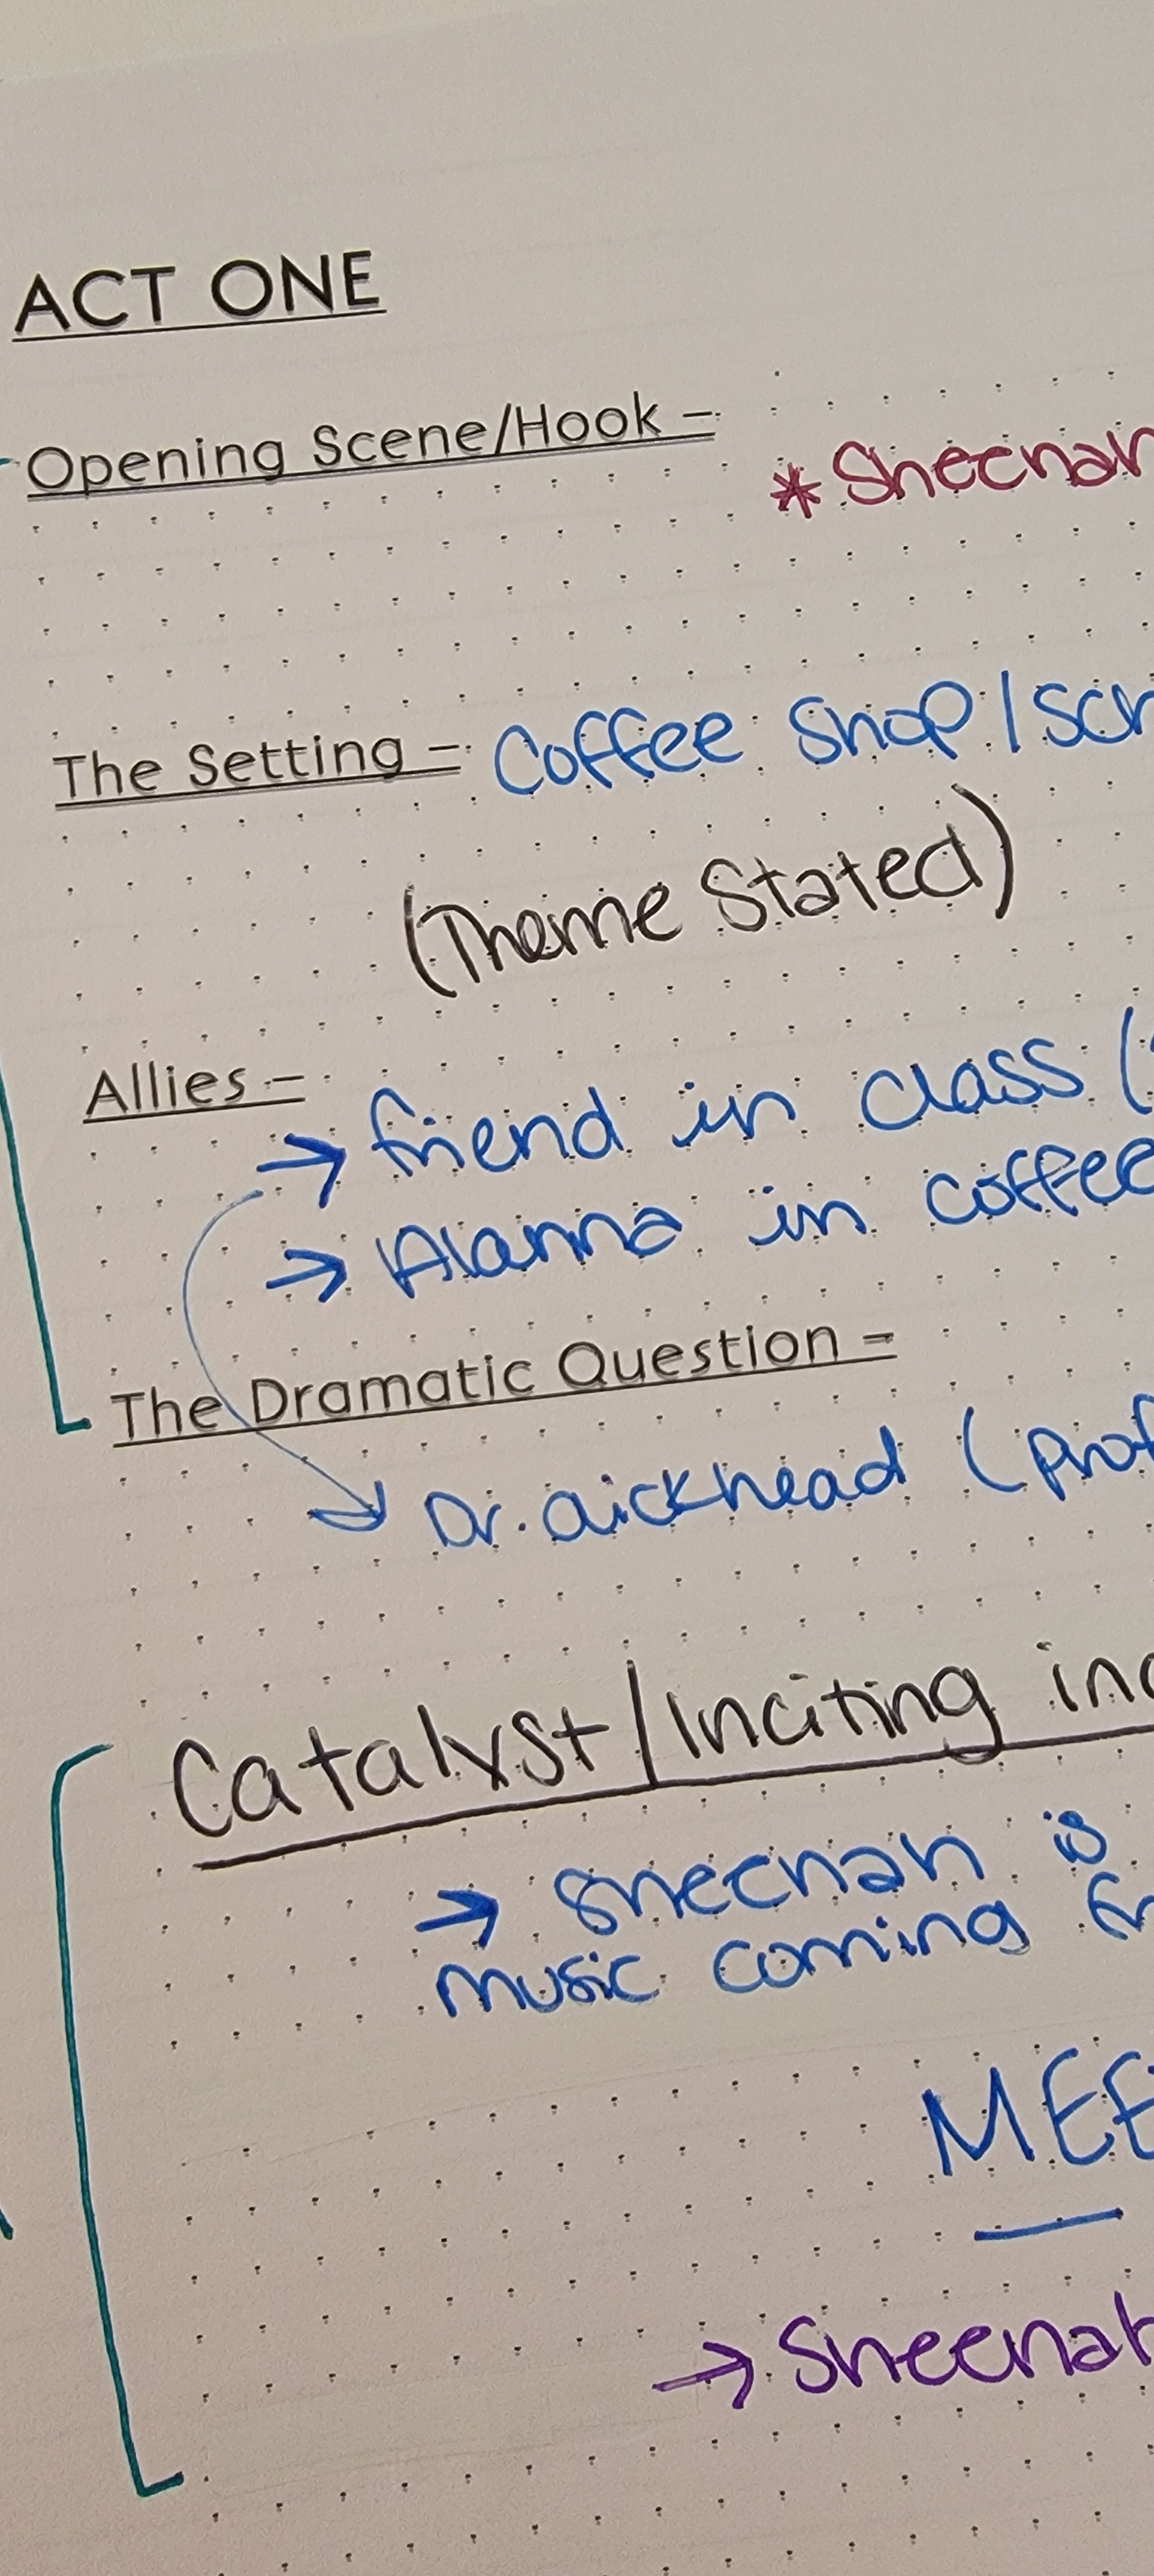 ACT ONE
Opening Scene/Hook -
* Sheenan
The Setting - Coffee Shop / Sch
(Theme Stated)
Allies -
→ friend in class (
→ Alanna in coffee
The Dramatic Question -
Dr. dickhead (prof
Catalyst/Inciting inc
→ Sheenan is
music coming fr
MEE
→ Sheenah